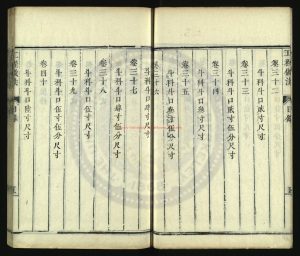 工程做法 目錄
卷三十二
斗科斗口貳寸尺寸
卷三十三
斗科斗口貳寸伍分尺寸
卷三十四
斗科斗口叁寸尺寸
卷三十五
斗科斗口叁寸伍分尺寸
卷三十六
斗科斗口肆寸尺寸
卷三十七
斗科斗口肆寸伍分尺寸
卷三十八
斗科斗口伍寸尺寸
卷三十九
斗科斗口伍寸伍分尺寸
卷四十